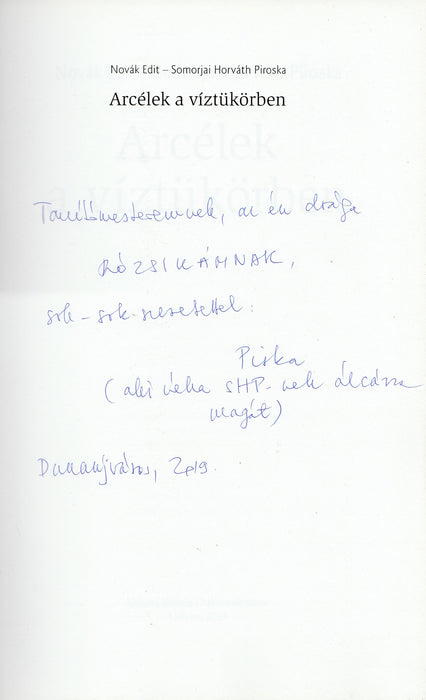 Novák Edit – Somorjai Horváth Piroska
Arcélek a víztükörben
Tanítómesteremnek, az én drága
RÓZSIKÁMNAK,
sok-sok-szeretettel:
Piska
(aki néha SHP-nek álcázza
magát)
Dunaújváros, 2019.